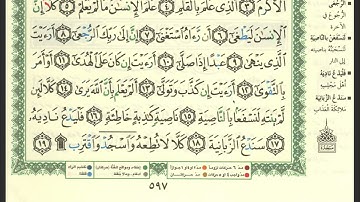 ٱلۡأَكۡرَمُ ٣ ٱلَّذِي عَلَّمَ بِٱلۡقَلَمِ ٤ عَلَّمَ ٱلۡإِنسَٰنَ مَا لَمۡ يَعۡلَمۡ ٥ كَلَّآ إِنَّ
ٱلۡإِنسَٰنَ لَيَطۡغَىٰٓ ٦ أَن رَّءَاهُ ٱسۡتَغۡنَىٰٓ ٧ إِنَّ إِلَىٰ رَبِّكَ ٱلرُّجۡعَىٰٓ ٨ أَرَءَيۡتَ
ٱلَّذِي يَنۡهَىٰ ٩ عَبۡدًا إِذَا صَلَّىٰٓ ١٠ أَرَءَيۡتَ إِن كَانَ عَلَى ٱلۡهُدَىٰٓ ١١ أَوۡ أَمَرَ
بِٱلتَّقۡوَىٰٓ ١٢ أَرَءَيۡتَ إِن كَذَّبَ وَتَوَلَّىٰٓ ١٣ أَلَمۡ يَعۡلَم بِأَنَّ ٱللَّهَ يَرَىٰ ١٤ كَلَّا لَئِن
لَّمۡ يَنتَهِ لَنَسۡفَعَۢا بِٱلنَّاصِيَةِ ١٥ نَاصِيَةٖ كَٰذِبَةٍ خَاطِئَةٖ ١٦ فَلۡيَدۡعُ نَادِيَهُۥ
١٧ سَنَدۡعُ ٱلزَّبَانِيَةَ ١٨ كَلَّا لَا تُطِعۡهُ وَٱسۡجُدۡۤ وَٱقۡتَرِب۩ ١٩
٥٩٧
الرُّجْعَى
لَنَسْفَعًا بِالنَّاصِيَةِ
فَلْيَدْعُ نَادِيَهُ
سَنَدْعُ الزَّبَانِيَةَ
ملائكة العذاب